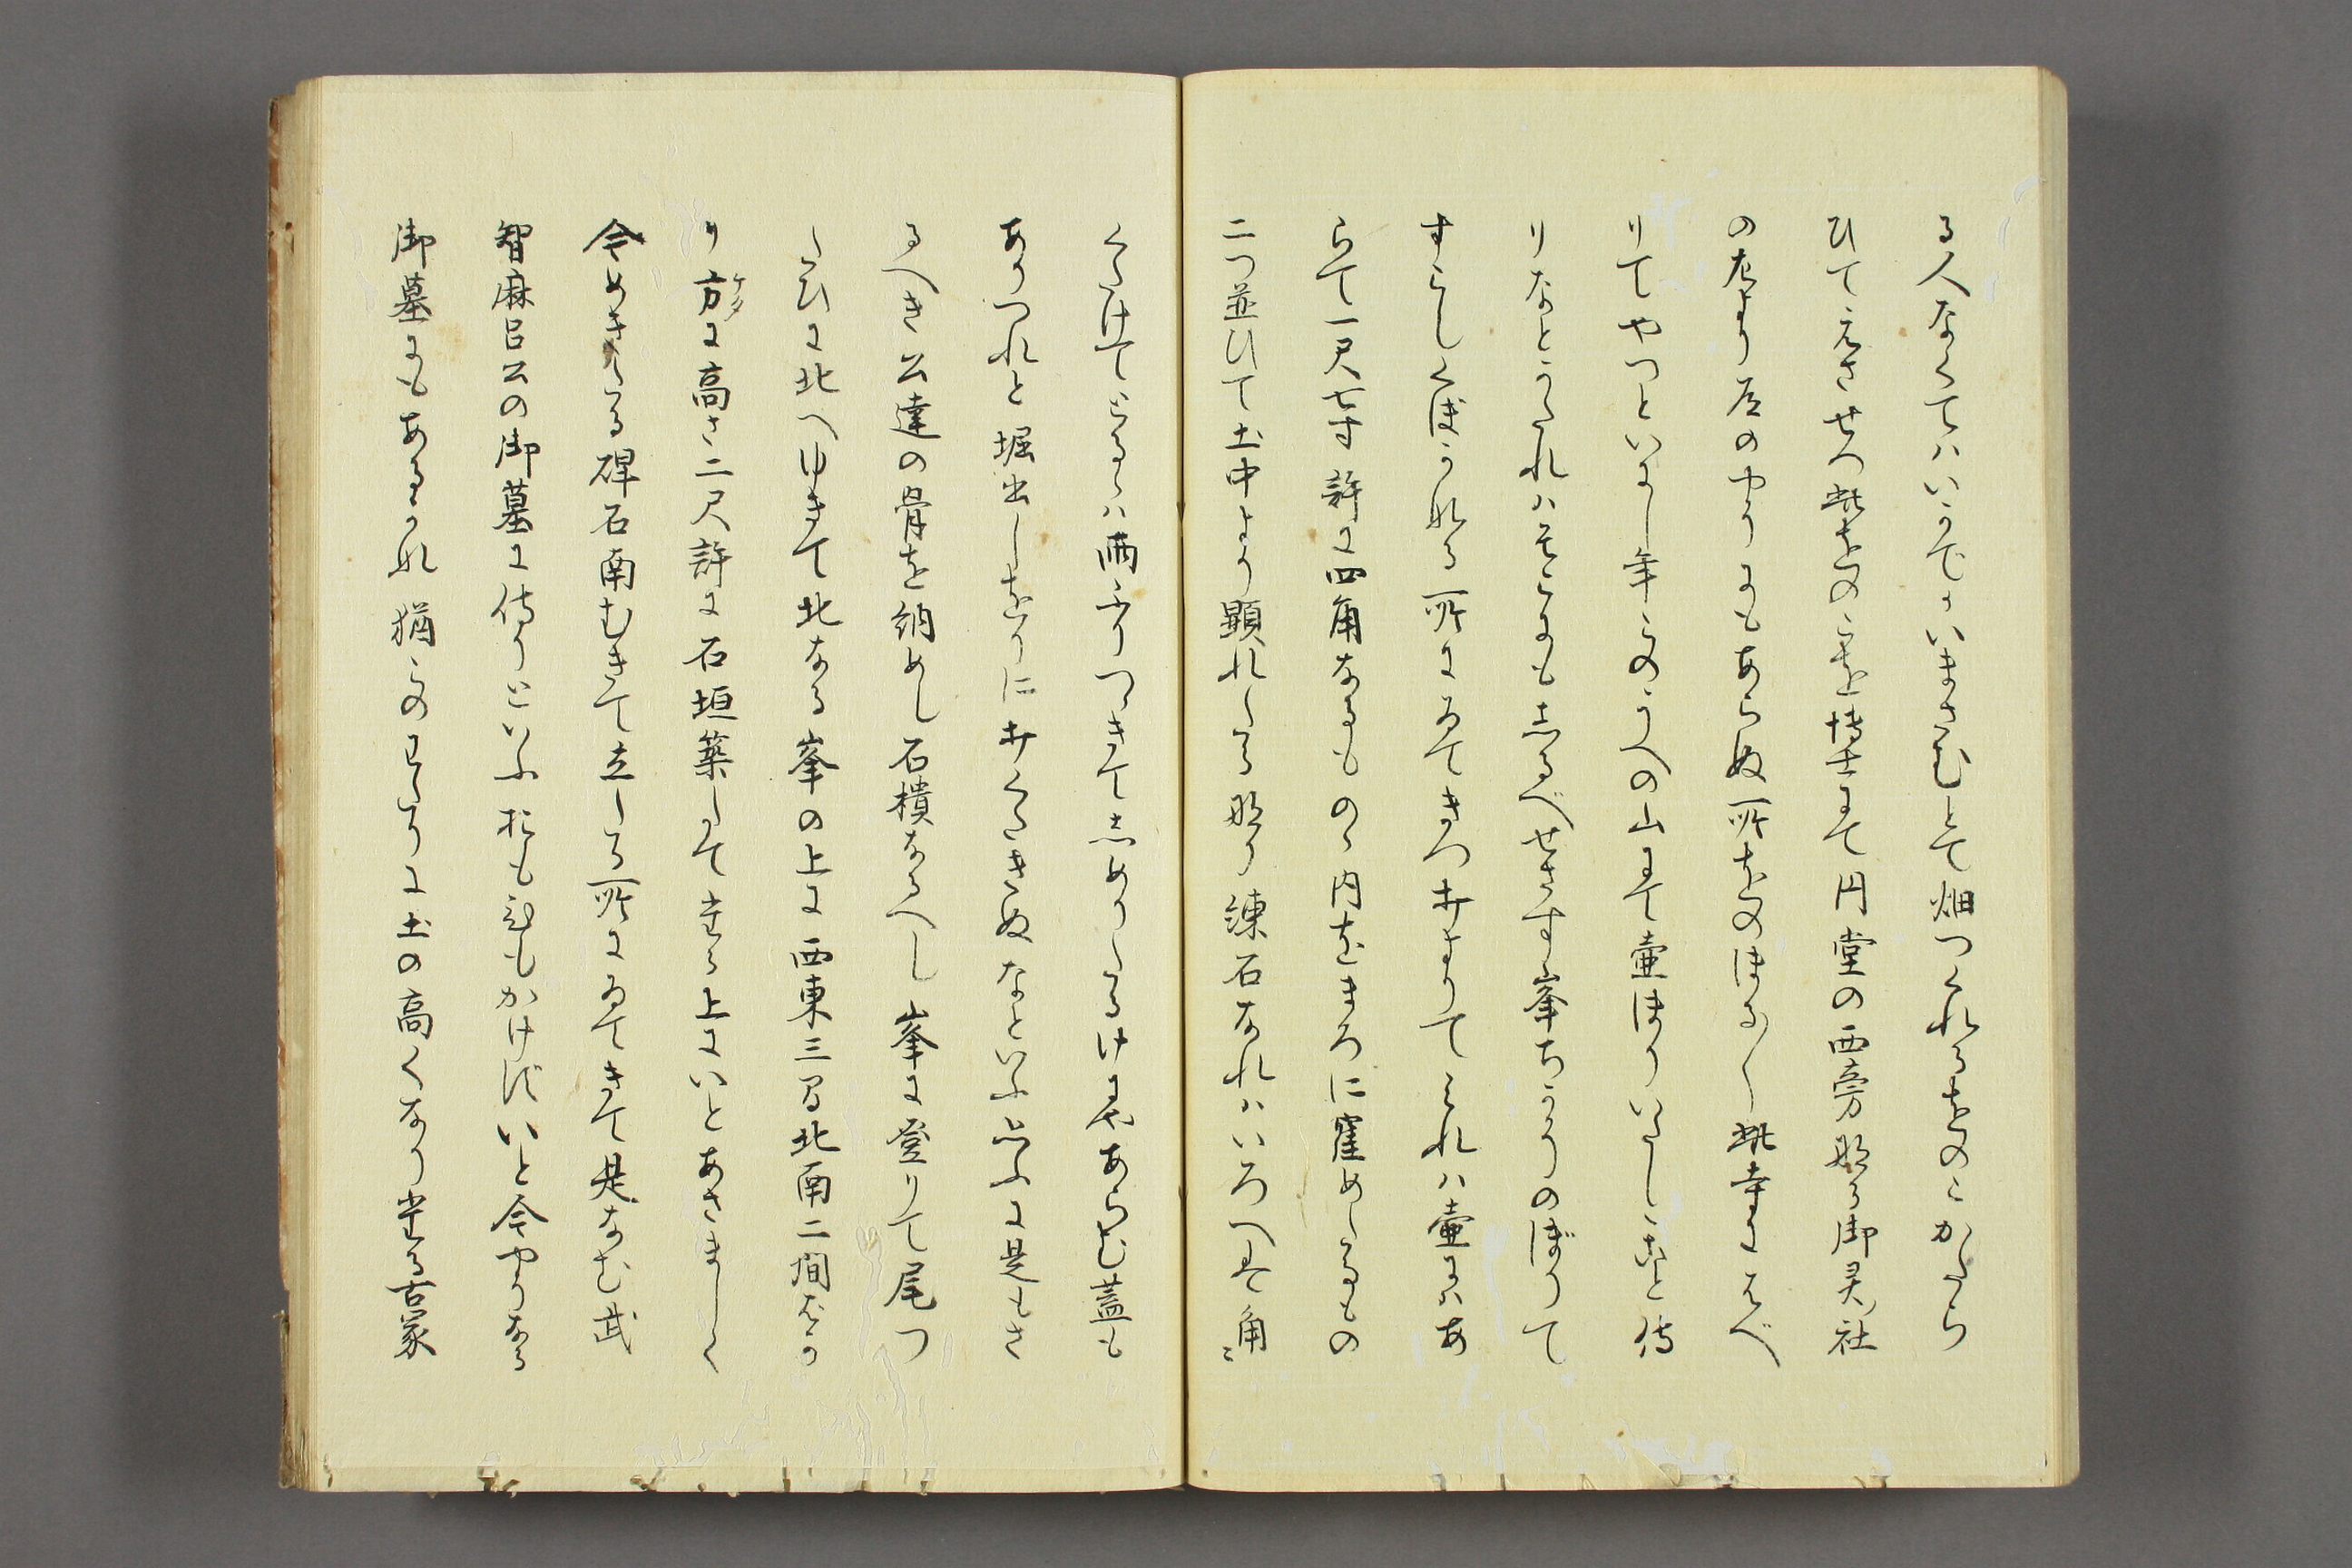 る人なくてハいかでかいまさむとて畑つくれるをのこかたら
ひてえさせつ此をのこを博士にて円堂の西旁なる御灵社
の左より道のやうにもあらぬ所をのほる〳〵此寺にはべ
りてやつといにし年このうへの山にて壷ほりいたしこと侍
りなとかたれハそこにもしるべせさす峯ちかうのぼりて
すこしくぼかなる所にゐてきつ井よりてみれハ壷にハあ
らて一尺七寸許に四角なるものゝ内をまろに窪めたるもの
二つ並ひて土中より顕れたる形り練石なれハいろへる角〻
くたけてこなるハ雨ふりつゝきてしめりたるけにやあらむ蓋も
ありつれと堀出しをりに井くたきぬなといふ思ふに是もさ
るへき公達の骨を納めし石樻なるへし峯に登りて尾つ
たひに北へゆきて北なる峯の上に西東三間北南二間ばか
り方に高さ二尺許に石垣築たして其か上にいとあさましく
今めきたる碑石南むきて立たる所にゐてきて是なむ武
智麻呂公の御墓に侍りといふおもひもかけずいと今やうなる
御墓にもあるかな猶このわたりに土の高くなり其る古冢